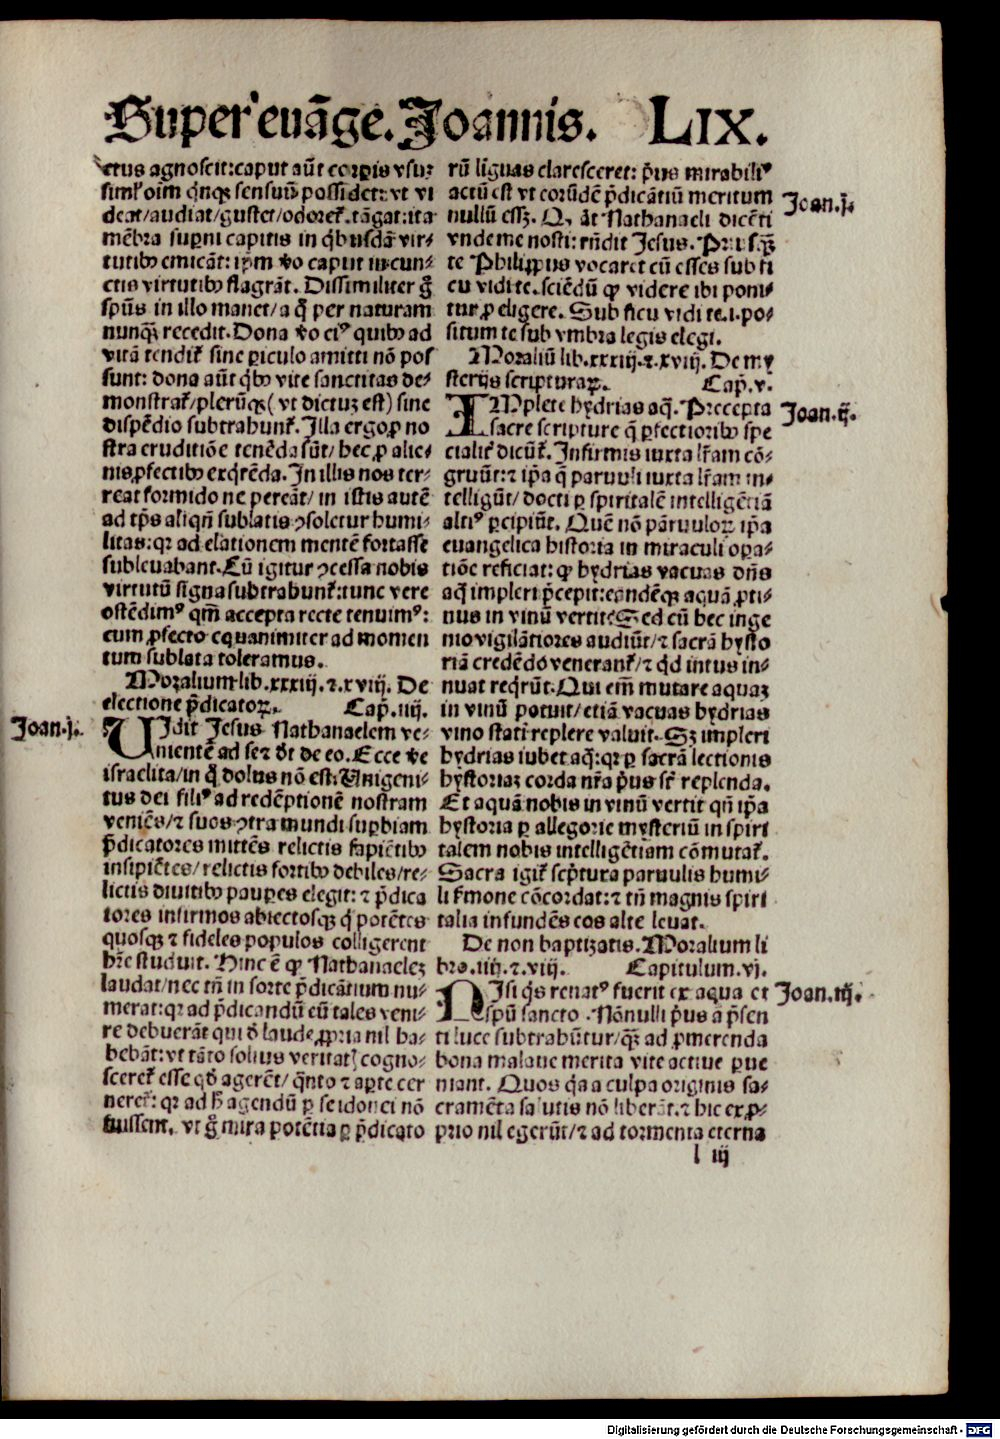 Super euāge. Joannis. LIX.
ctus agnoscit: caput aūt corpis vsur
siml̓ oīm qīnqꝫ sensuū possidet: vt vi
deat/audiat/gustet/odoret᷑. tāgat: ita
mēbra supni capitis in qͥbusdā vir⸗
tutibꝰ emicāt: ipm̄ ꝟo caput in cun⸗
ctis virtutibꝰ flagrāt. Dissimiliter g̊
spūs in illo manet/a q̊ per naturam
nunqꝫ recedit. Dona ꝟo eiꝰ quibꝰ ad
vitā tendit᷑ sine piculo amitti nō pos
sunt: dona aūt qͥbꝰ vite sanctitas de⸗
monstrat᷑/plerūqꝫ (vt dictuꝫ est) sine
dispēdio subtrahunt᷑. Illa ergo ꝓ no
stra eruditiōe tenēda sūt/hec ꝓ alie⸗
nis ꝓfectibꝰ exqrēda. In illis nos ter⸗
reat formido ne pereāt/in istis autē
ad tp̄s aliqn̄ sublatis ꝯsoletur humi⸗
litas: qꝛ ad elationem mentē fortasse
subleuabant. Cū igitur ꝯcessa nobis
virtutū signa subtrahunt᷑: tunc vere
ostēdimꝰ qm̄ accepta recte tenuimꝰ:
cum ꝓfecto equanimiter ad momen
tum sublata toleramus.
Moralium lib. xxxiij. ⁊. xviij. De
electione p̄dicatoꝝ. Cap. iiij.
Joan. j.
Uidit Jesus Nathanaelem ve⸗
nientē ad se ⁊ dt̄ de eo. Ecce ꝟe
israelita/in q̊ dolus nō est. Unigeni⸗
tus dei filiꝰ ad redēptionē nostram
veniēs/⁊ suos ꝯtra mundi supbiam
p̄dicatores mittēs relictis sapiētibꝰ
insipiētes/relictis fortibꝰ debiles/re⸗
lictis diuitibꝰ paupes elegit: ⁊ p̄dica
tores infirmos abiectosqꝫ q̇ potētes
quosqꝫ ⁊ fideles populos colligerent
hr̄e studuit. Hinc ē ꝙ Nathanaeleꝫ
laudat/nec tn̄ in sorte p̄dicātium nu⸗
merat: qꝛ ad p̄dicandū eū tales veni⸗
re debuerāt qui d̄ laude ꝓpria nil ha⸗
bebāt: vt tāto solius veritatꝭ cogno⸗
sceret᷑ esse qd̄ agerēt/qͣnto ⁊ apte cer
neret᷑: qꝛ ad h̄ agendū p se idonei nō
fuissent. vt g̊ mira potētia p p̄dicato
rū linguas claresceret: p̄us mirabiliꝰ
actū est vt eorūdē p̄dicātiū meritum
nullū essꝫ. Qꝛ āt Nathanaeli dicēti
Joan. j.
vnde me nosti: rn̄dit Jesus. Priusqꝫ
te Philippus vocaret cū esses sub fi
cu vidi te. sciēdū ꝙ videre ibi poni⸗
tur ꝓ eligere. Sub ficu vidi te. i. po⸗
situm te sub vmbra legis elegi.
Moraliū lib. xxxiij. ⁊. xviij. De my
sterijs scripturaꝝ. Cap. v.
Joan. ij.
IMplete hydrias aq̄. Precepta
sacre scripture q̄ pfectioribꝰ spe
cialit᷑ dicūt᷑. Infirmis iuxta lr̄am cō⸗
gruūt: ⁊ ip̄a q̄ paruuli iuxta lr̄am in⸗
telligūt/docti p spiritalē intelligētiā
altiꝰ pcipiūt. Quē nō pāruuloꝝ ip̄a
euangelica historia in miraculi opa⸗
tiōe reficiat: ꝙ hydrias vacuas dn̄s
aq̄ impleri p̄cepit: eandēqꝫ aquā ꝓti⸗
nus in vinū vertit? Sed cū hec inge
nio vigilātiores audiūt/⁊ sacrā hysto
riā credēdo venerant᷑/⁊ qd̄ intus in⸗
nuat reqrūt. Qui em̄ mutare aquaꝫ
in vinū potuit/etiā vacuas hydrias
vino stati replere valuit. Sꝫ impleri
hydrias iubet aq̄: qꝛ p sacrā lectionis
hystoriaꝫ corda nr̄a p̄us st̄ replenda.
Et aquā nobis in vinū vertit qn̄ ip̄a
hystoria p allegorie mysteriū in spiri
talem nobis intelligētiam cōmutat᷑.
Sacra igit᷑ scp̄tura paruulis humi⸗
li ẜmone cōcordat: ⁊ tn̄ magnis spiri
talia infundēs eos alte leuat.
De non baptizatis. Moralium li
bro. iiij. ⁊. viij. Capitulum. vj.
Joan. iij.
NIsi qͥs renatꝰ fuerit ex aqua et
spū sancto. Nōnulli p̄us a p̄sen
ti luce subtrahūtur/qꝫ ad pmerenda
bona malaue merita vite actiue pue
niant. Quos qͥa a culpa originis sa⸗
cramēta salutis nō liberāt. ⁊ hic ex ꝓ⸗
prio nil egerūt/⁊ ad tormenta eterna
l iij
Digitalisierung gefördert durch die Deutsche Forschungsgemeinschaft - DFG